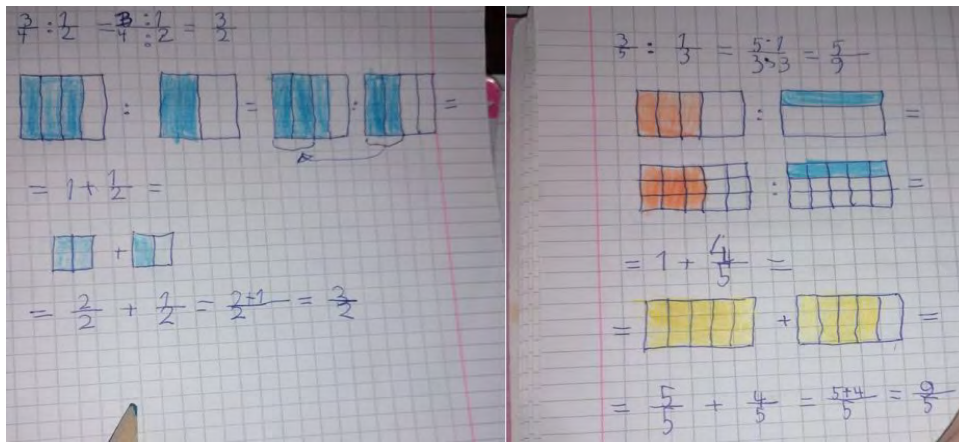 3/4 : 1/2 = 3/4 : 1/2 = 3/2
: = : =
= 1 + 1/2 =
+
= 2/2 + 1/2 = 2+1/2 = 3/2
3/5 : 1/3 = 5·1/3·3 = 5/9
: =
: =
= 1 + 4/5 =
= + =
= 5/5 + 4/5 = 5+4/5 = 9/5